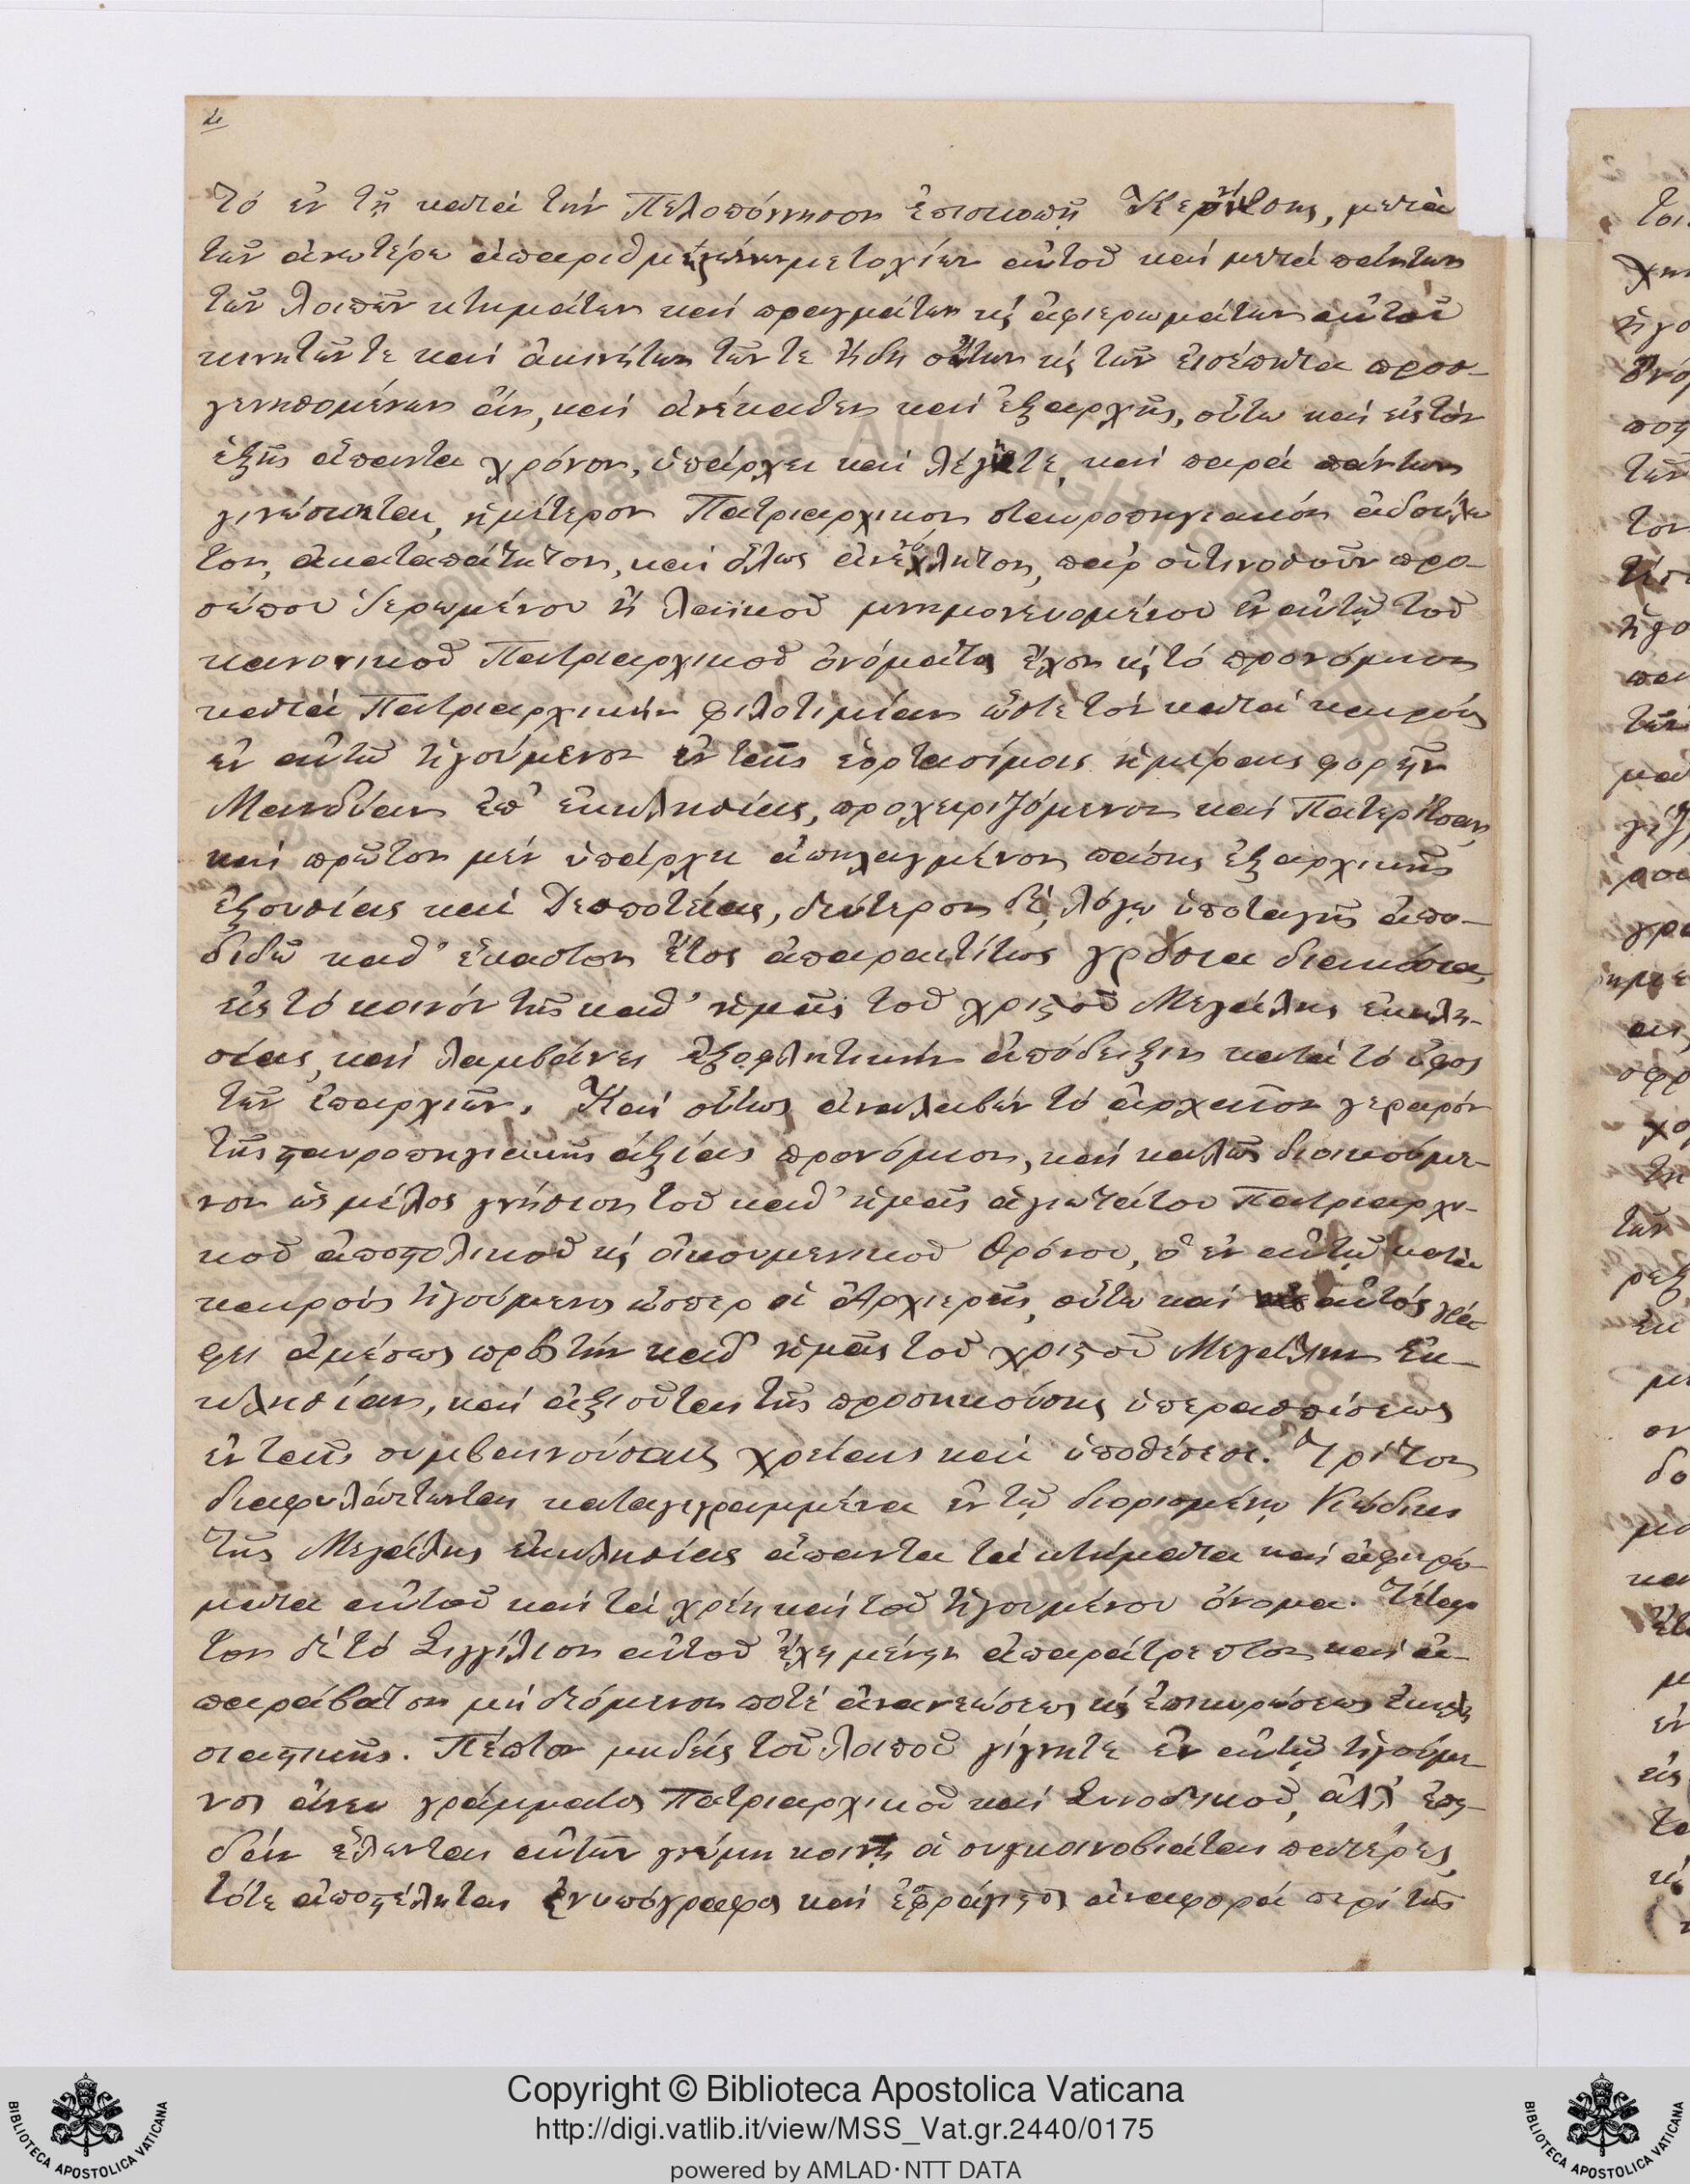 2
τό ἐν τῇ κατά τήν Πελοπόννησον ἐπισκοπῇ Κερνίτσης, μετὰ
τῶν ἀνωτέρω ἀπαριθμηθέντων μετοχίων αὐτοῦ καί μετά πάντων
τῶν λοιπῶν κτημάτων καί πραγμάτων κ͵ ἀφιερωμάτων αὐτοῦ
κινητῶν τε καί ἀκινήτων τῶν τε ἤδη ὄντων κ͵ τῶν εἰσέπειτα προσ-
γενησομένων ἄν, καί ἀνέκαθεν καί ἐξαρχῆς, οὕτω καί εἰς τόν
ἑξῆς ἅπαντα χρόνον, ὑπάρχει καί λέγητε, καί παρά πάντων
γινώσκεται, ἡμέτερον Πατριαρχικόν σταυροπηγιακόν ἀδούλω
τον, ἀκαταπάτητον, καί ὅλως ἀνενόχλητον, παρ' οὑτινοσοῦν προ-
σώπου ἱερωμένου ἤ λαϊκοῦ μνημονευομένου ἐν αὐτῷ τοῦ
κανονικοῦ Πατριαρχικοῦ ὀνόματος ἔχον κ͵ τό προνόμιον
κατά Πατριαρχικήν φιλοτιμίαν ὥστε τόν κατά καιρούς
ἐν αὐτῷ ἡγούμενον ἐν ταῖς ἑορτασίμοις ἡμέραις φορεῖν
Μανδύαν ἐπ' ἐκκλησίας, προχειριζόμενον καί Πατερίτσαν,
καί πρῶτον μέν ὑπάρχει ἀπηλαγμένον πάσης ἐξαρχικῆς
ἐξουσίας καί Δεσποτείας, δεύτερον δέ, λόγῳ ὑποταγῆς ἀπο-
διδῶ καθ' ἕκαστον ἔτος ἀπαραιτίτως γρόσια διακόσια,
εἰς τό κοινόν τῆς καθ' ἡμᾶς τοῦ χριϛοῦ Μεγάλης ἐκκλη-
σίας, καί λαμβάνει ἐξοφλητικήν ἀπόδειξιν κατά τό ὕφος
τῶν ἐπαρχιῶν. Καί οὕτως ἀναλαβών τό ἀρχαῖον γεραρόν
τῆς ϛαυροπηγιακῆς ἀξίας προνόμιον, καί καλῶς διοικούμε-
νον ὡς μέλος γνήσιον τοῦ καθ' ἡμᾶς ἁγιωτάτου Πατριαρχι-
κοῦ ἀποϛολικοῦ κ͵ οἰκουμενικοῦ θρόνου, ὁ ἐν αὐτῷ κατά
καιρούς ἡγούμενος ὥσπερ οἱ Ἀρχιερεῖς, οὕτω καί αὐτός γρά
φει ἀμέσως πρὸς τήν καθ' ἡμᾶς τοῦ χριϛοῦ Μεγάλην Ἐκ-
κλησίαν, καί ἀξιοῦται τῆς προσηκούσης ὑπερασπίσεως
ἐν ταῖς συμβαινούσαις χρείαις καί ὑποθέσεσι. Τρίτον
διαφυλάττωνται καταγεγραμμένα ἐν τῷ διορισμένῳ Κώδικι
τῆς Μεγάλης ἐκκλησίας ἅπαντα τά κτήματα καί ἀφιερώ-
ματα αὐτοῦ καί τά χρέη καί τοῦ ἡγουμένου ὄνομα. Τέταρ
τον δέ τό Σιγγίλιον αὐτοῦ ἔχει μένειν ἀπαράτρεπτον καί ἀ-
παράβατον μή δεόμενον ποτέ ἀνανεώσεως κ͵ ἐπικυρώσεως ἐκκλη
σιαϛικῆς. Πέπτον μηδείς τοῦ λοιποῦ γίγνητε ἐν αὐτῷ ἡγούμε-
νος ἄνευ γράμματος Πατριαρχικοῦ καί Συνοδικοῦ, ἀλλ' ἐπει-
δάν ἕλωνται αὐτῶν γνώμῃ κοινῇ οἱ συγκοινοβιάται πατέρες,
τότε ἀποϛέλεται ἐνυπόγραφος καί ἐσφράγιϛος ἀναφορά περί τῆς